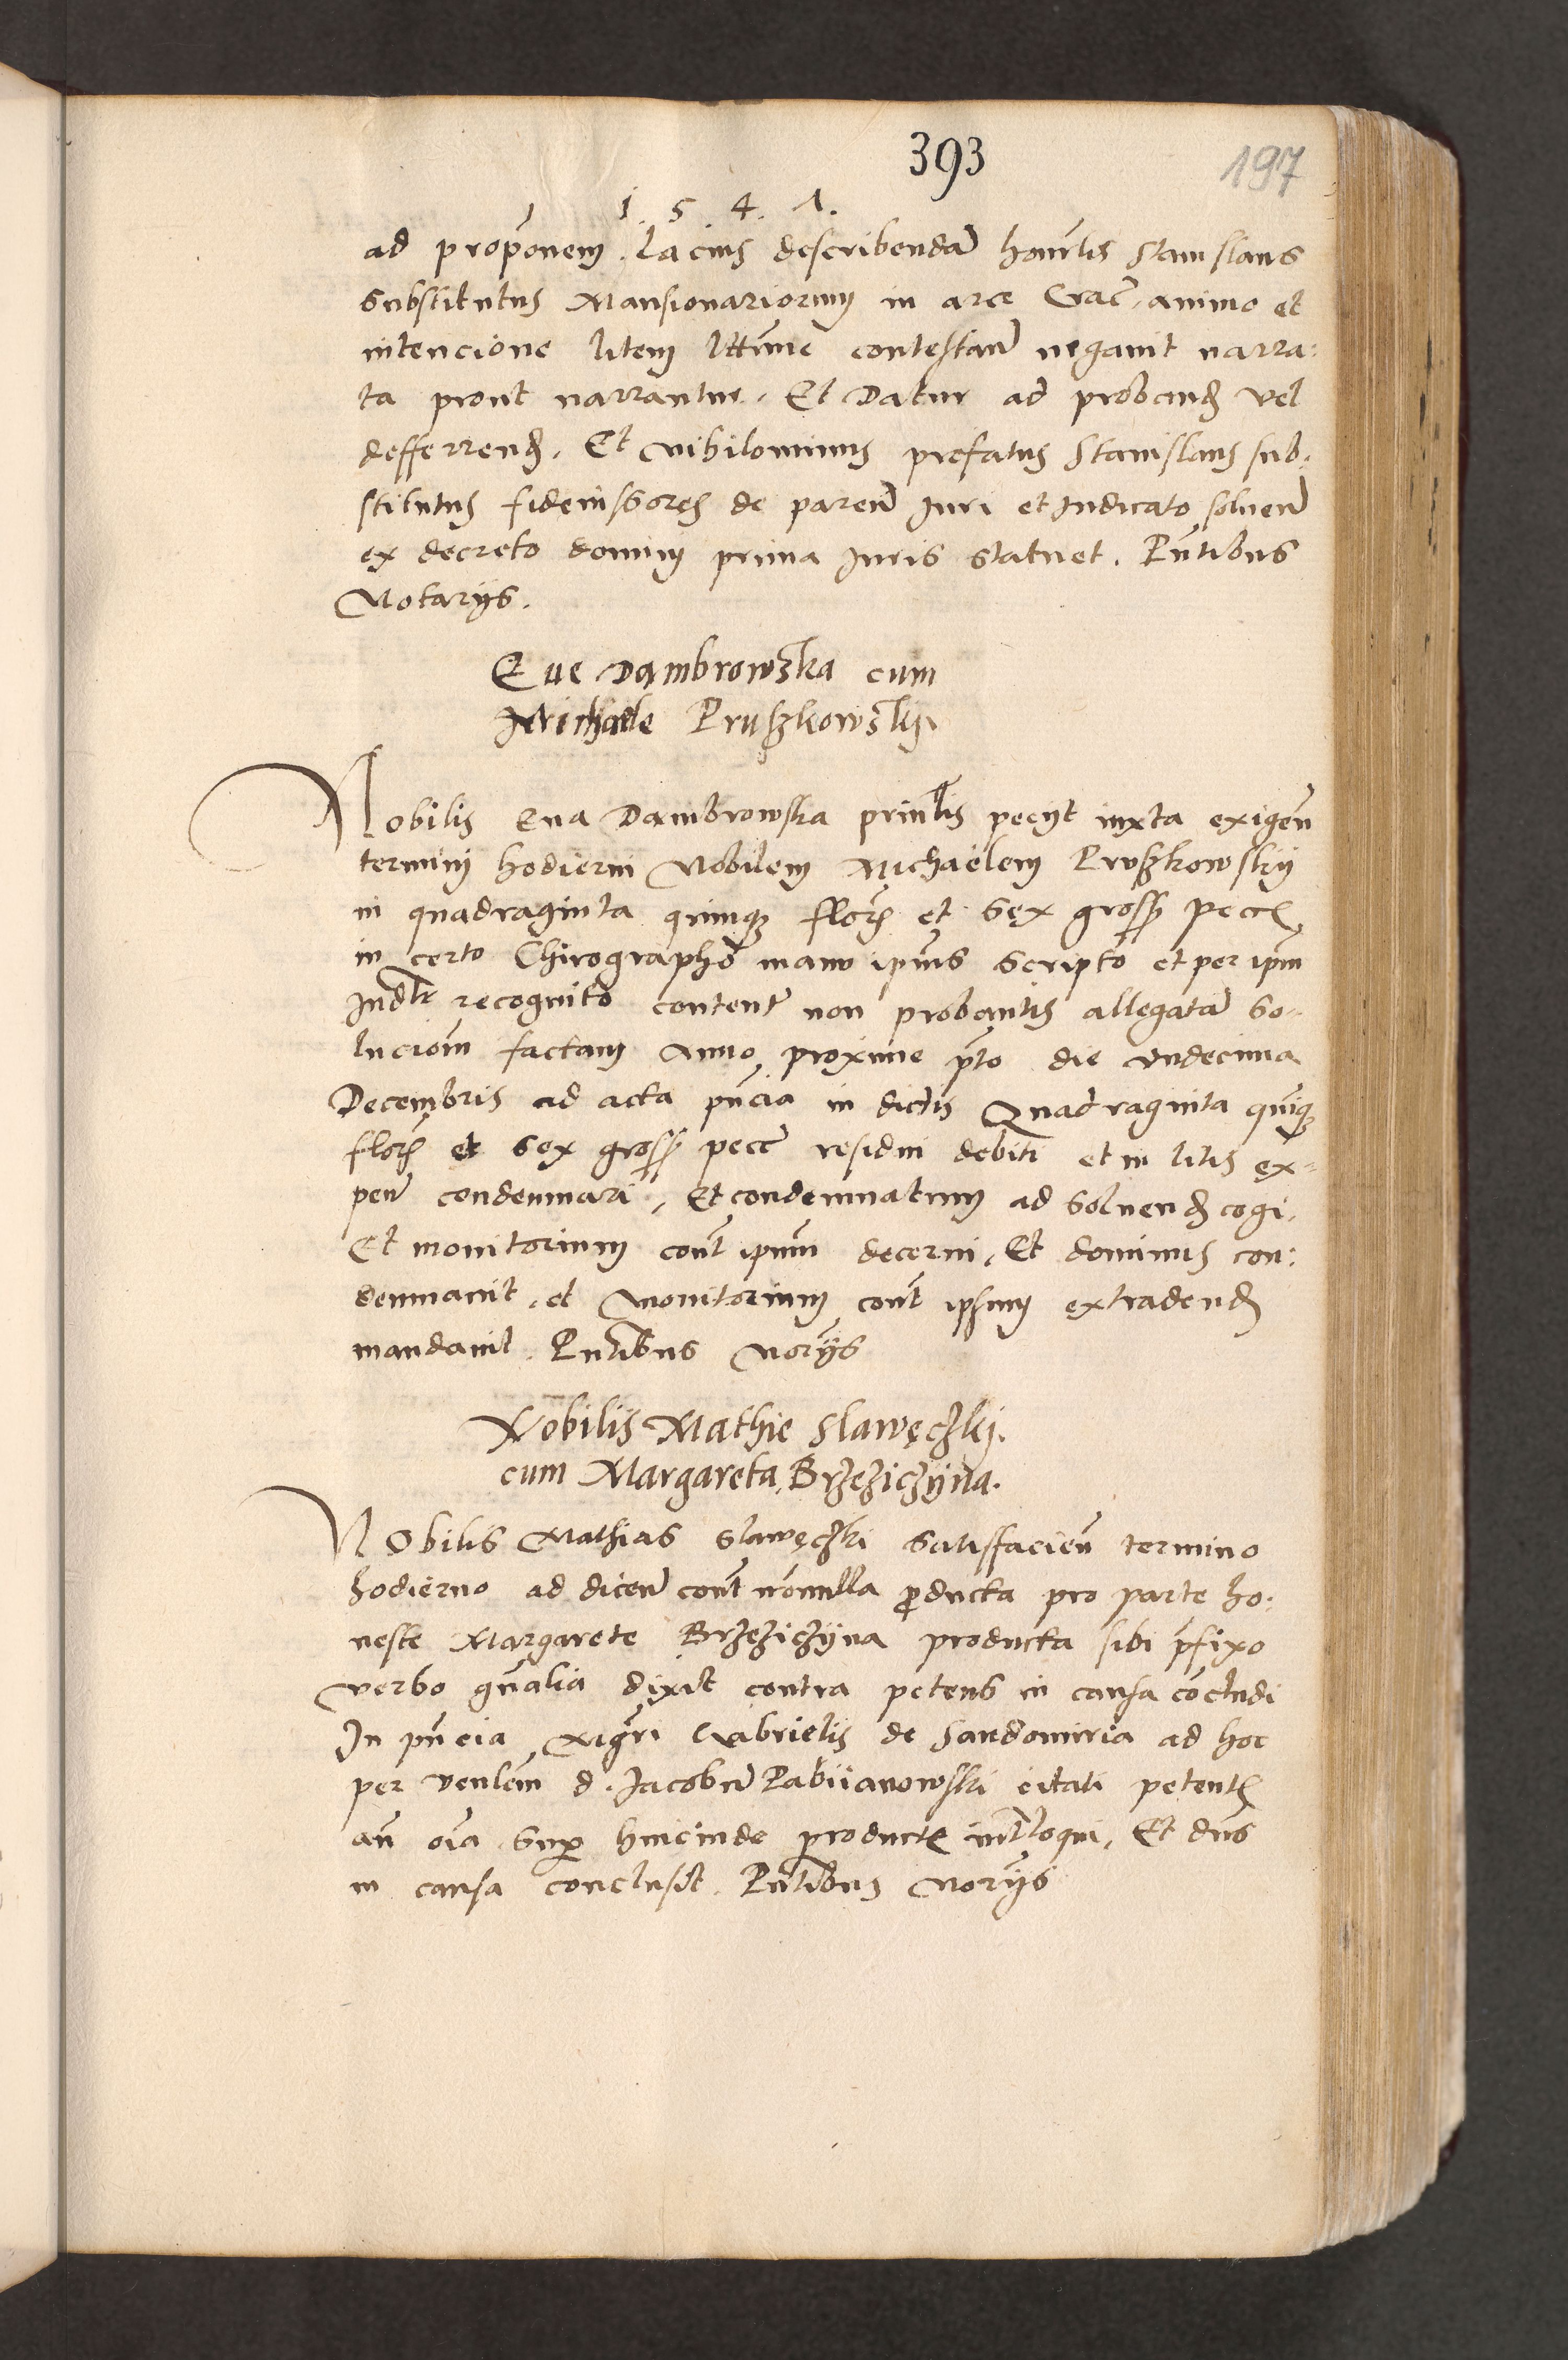 393
197
1. 5. 4. 1.
ad propōnem lacius describendā honrlis Stanislaus
substitutus Mansionariorum in arce Crac̄, animo et
intencione litem lttīme contestanē negavit narra:
ta prout narrantur. Et Datur ad proband vel
defferrend. Et nihilominus prefatus Stanislaus sub:
stitutus fideiussores de parenē Iuri et Iudicato solvenē
ex decreto domini prima Iuris statuet. Pn̄tibus
Notarijs.
Eve Dambrowska cum
Michaele Prußkowskij
Nobilis Eva Dambrowska prinlis pecijt iuxta exigen̄
termini hodierni Nobilem Michaëlem Prußkowskij
in quadraginta quinq flor et sex gross pecc
in certo Chirographo manu ipīus scripto et per ipm̄
Iudlr recognito content̄ non probantis allegatā so-
lucioīm factam Anno proxime pn̄to die undecima
Decembris ad acta pn̄cia in dictis Quadraginta quīq
flor et sex gross pecc̄ residui debiti et in litis ex=
pen̄ condemnari, Et condemnatum ad solvend cogi,
Et monitorium cont̄ ipum̄ decerni, Et dominus con:
demnavit, et Monitorium cont̄ ipsum extradend
mandavit. Pn̄tibus Norijs
Nobilis Mathie Slawęczki.
cum Margareta Brzeziczÿna.
NObilis Mathias Slawęczki satisfacien̄ termino
hodierno ad dicen̄ cont̄ nōnulla producta pro parte ho:
neste Margarete Brzeziczÿna producta sibi p̄fixo
verbo gn̄alia dixit contra petens in causa cōcludi
In pn̄cia Mgr̄i Gabrielis de Sandomiria ad hoc
per venlēm d. Jacobū Pabiianowski citati petent
an̄ oīa super hincinde product int̄loqui, Et dn̄s
in causa conclusit. Pn̄tibus Norijs